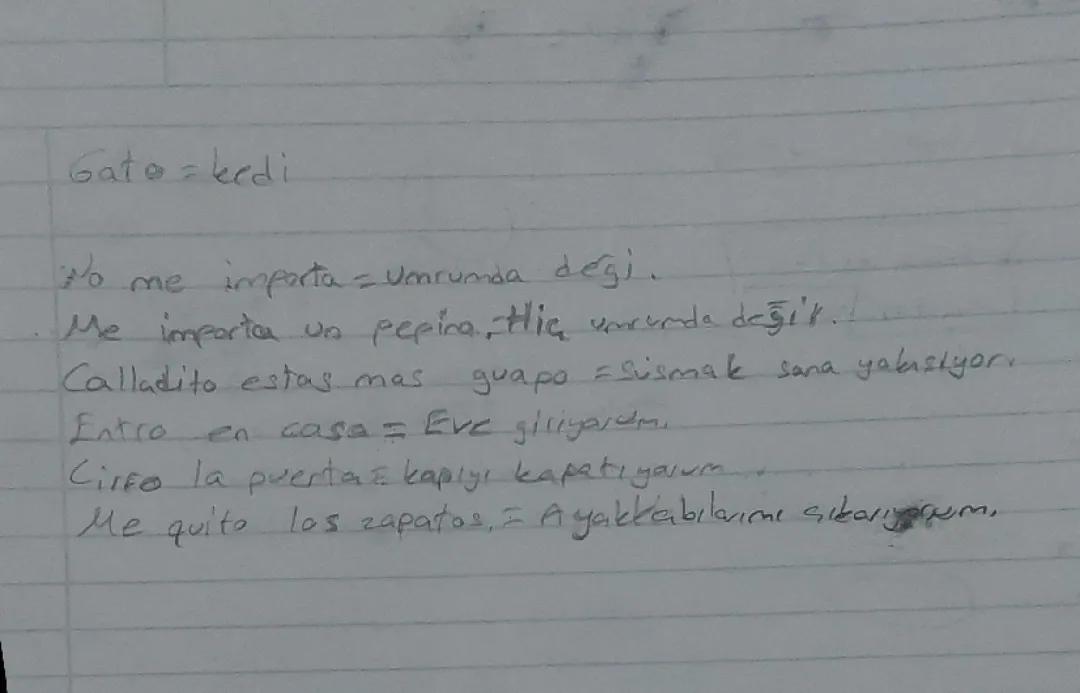 Gato = kedi
No me importa = umrumda deği.
Me importa un pepino, = Hiç umrumda değil.
Calladito estas mas guapo = susmak sana yakısıyor.
Entro en casa = Eve giriyorum.
Cirro la puerta = kapıyı kapatıyorum.
Me quito los zapatos, = Ayakkabılarımı çıkarıyorum.